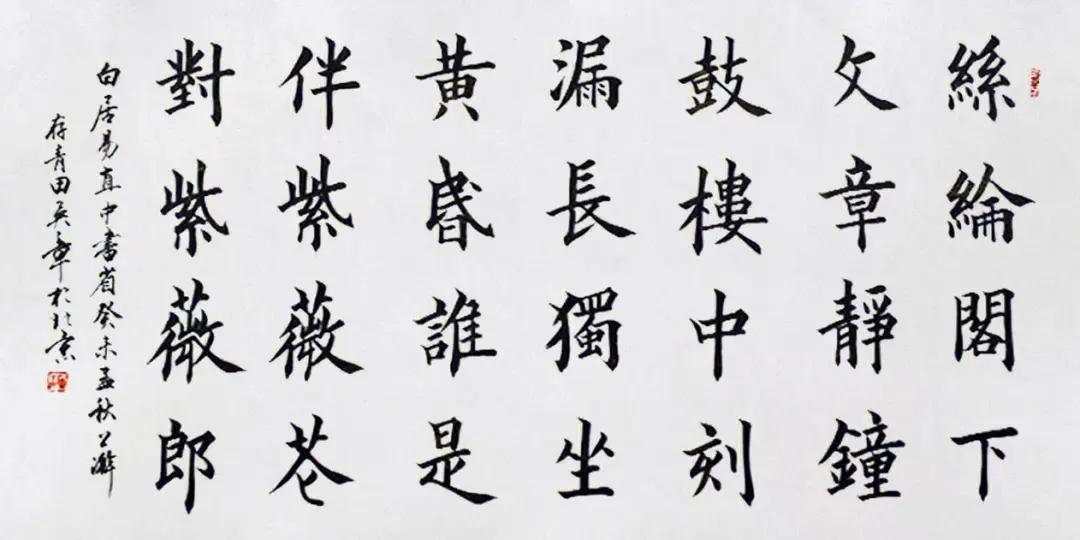 絲綸閣下
文章靜鐘
鼓樓中刻
漏長獨坐
黃昏誰是
伴紫薇花
對紫薇郎
白居易直中書省癸未孟秋
青田吳章於北京